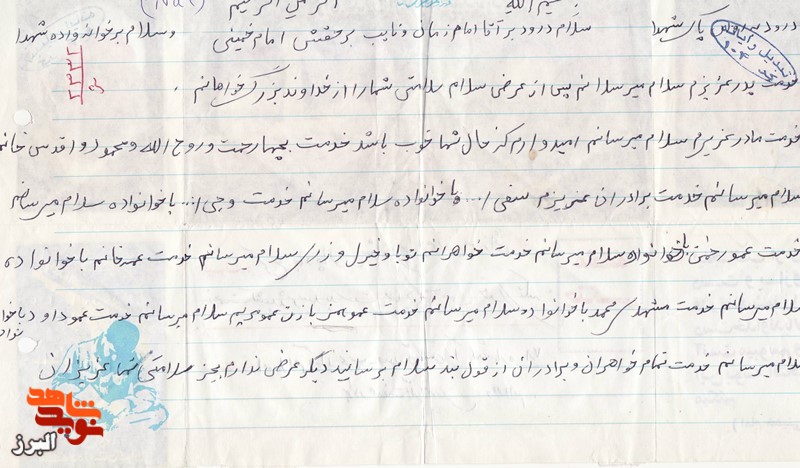 بسم الله الرحمن الرحیم
درود بر پاک شهدا سلام درود بر آقا امام زمان و نایب برحقش امام خمینی و سلام بر خوانواده شهدا
خدمت پدر عزیزم سلام میرسانم پس از عرض سلام سلامتی شما را از خداوند بزرگ خواهانم .
خدمت مادر عزیزم سلام میرسانم امیدوارم که حال شما خوب باشد خدمت رحمت و روح الله و محمود و اقدس خانم
سلام میرسانم خدمت برادران عزیزم ... با خوانواده سلام میرسانم خدمت وجی ا... با خوانواده سلام میرسانم
خدمت عمو با خوانواده سلام میرسانم خدمت خواهرانم سلام میرسانم خدمت عمه خانم با خوانواده
سلام میرسانم خدمت مشهدی محمد با خوانواده سلام میرسانم خدمت عمو با زن عمو سلام میرسانم خدمت عمو داود با خوا
نواده
سلام میرسانم خدمت تمام خواهران و برادران از قول بنده سلام برسانید دیگر عرضی ندارم بجز سلامتی شما عزیزان
نوید شاهد
البرز